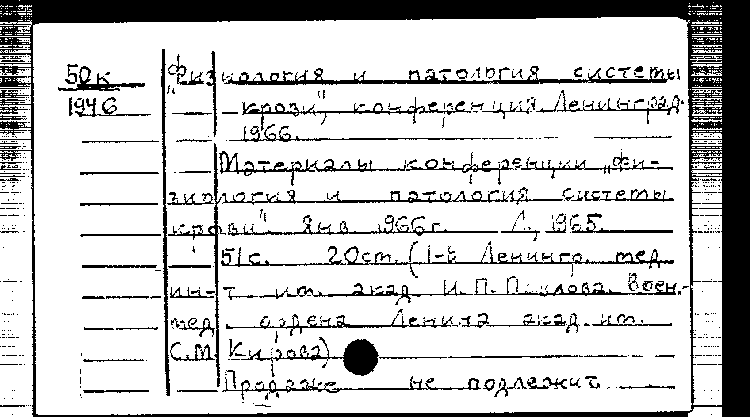 50к „Физиология и патология системы
1946 крови", конференция. Ленинград.
1966.
Материалы конференции „Фи-
зиология и патология системы
крови". Янв. 1966 г. Л., 1965.
51 с. 20 см. (1-й Ленингр. мед.
ин-т им. акад. И. П. Павлова. Воен.-
мед. ордена Ленина акад. им.
С. М. Кирова)
Продаже не подлежит